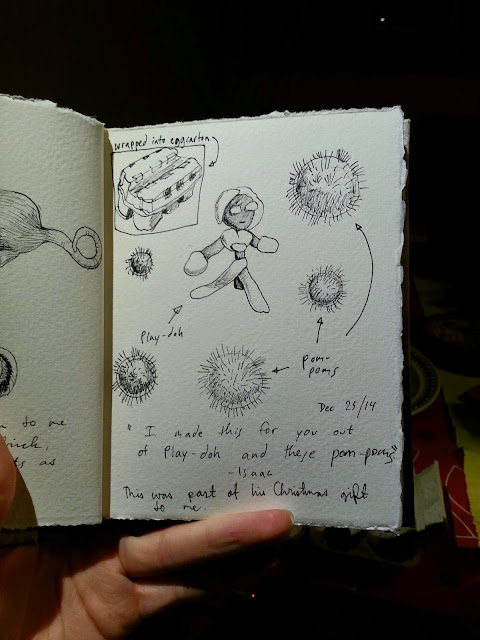 wrapped into eggcarton
Play-doh
pom-
poms
Dec 25/14
" I made this for you out
of Play-doh and these pom-poms"
- Isaac
This was part of his Christmas gift
to me.
to me
as